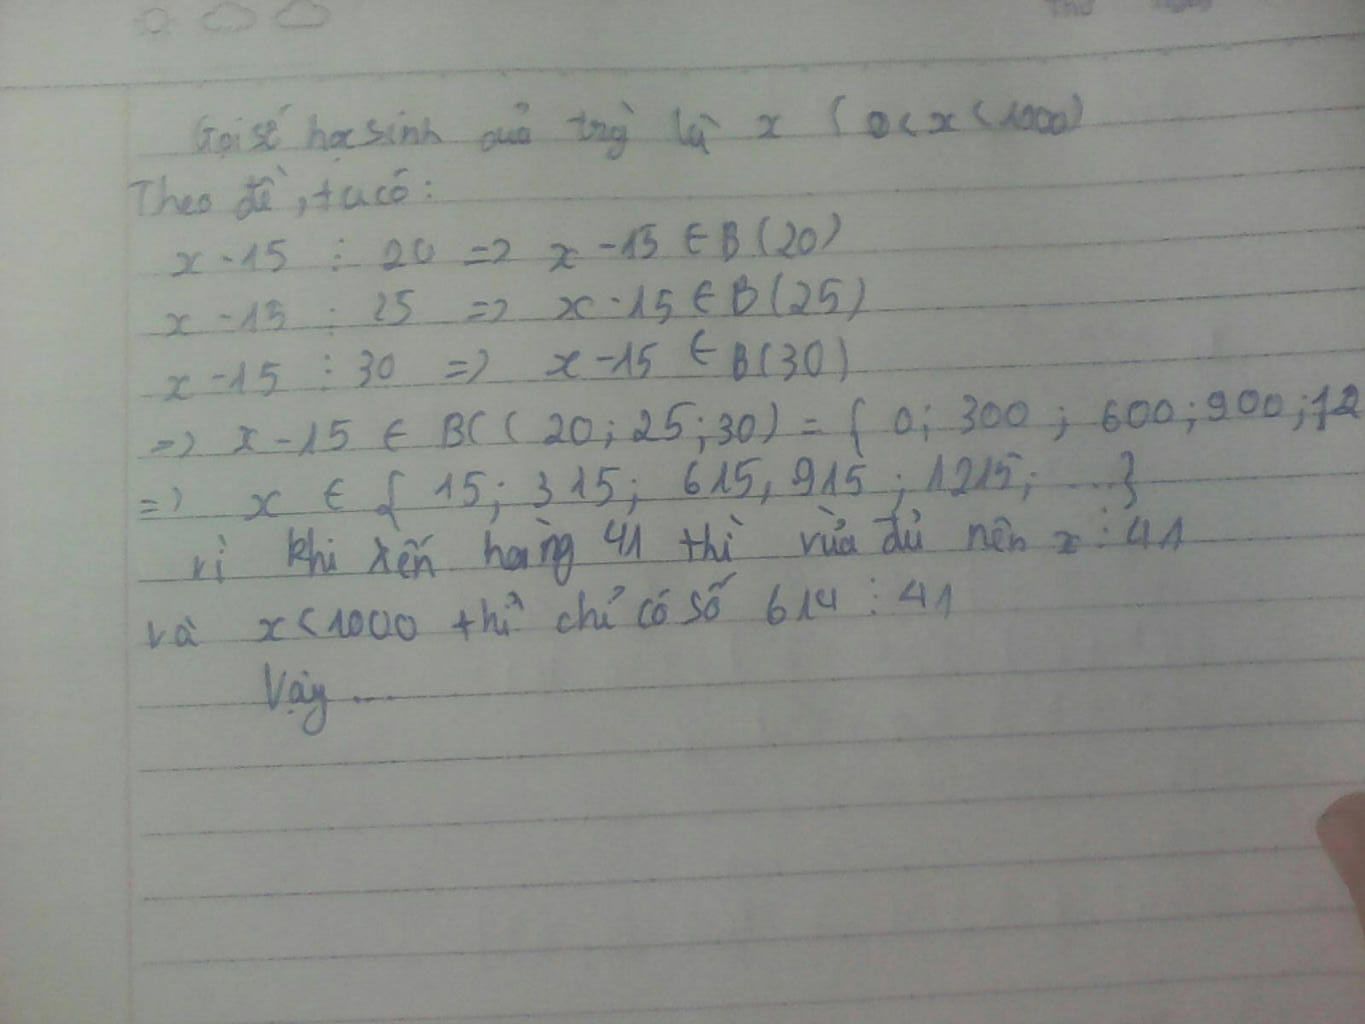 Gọi số học sinh của trg là x (0 < x < 1000)
Theo đề, ta có:
x - 15 ⋮ 20 => x - 15 ∈ B(20)
x - 15 ⋮ 25 => x - 15 ∈ B(25)
x - 15 ⋮ 30 => x - 15 ∈ B(30)
=> x - 15 ∈ BC(20; 25; 30) = { 0; 300; 600; 900; 12
=> x ∈ { 15; 315; 615, 915; 1215; ...}
vì khi xếp hàng 41 thì vừa đủ nên x ⋮ 41
và x < 1000 thì chỉ có số 614 ⋮ 41
Vậy ...